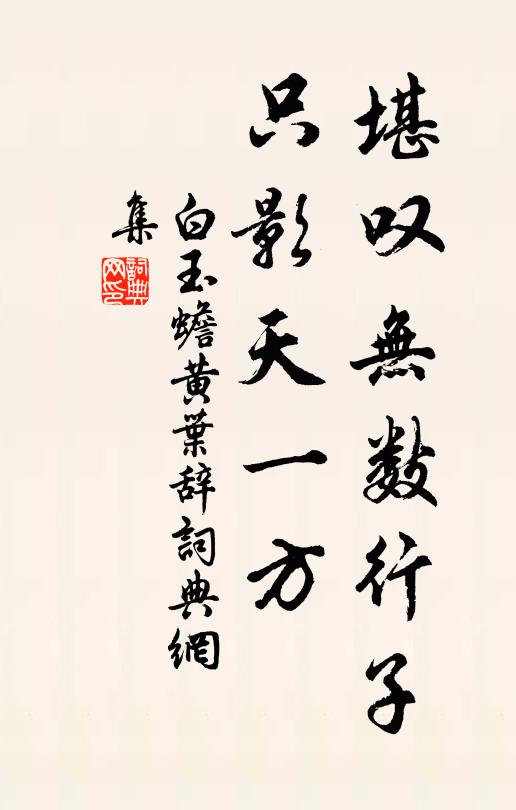 堪叹無数行子
只影天一方
白玉蟾黄葉辞詞典網
集
詞典
网印